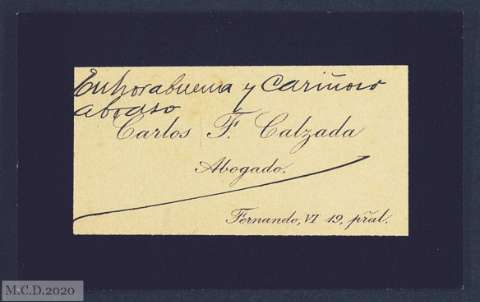 Enhorabuena y cariñoso
abrazo
Carlos F. Calzada
Abogado.
Fernando, VI 19, pral.
M.C.D.2020